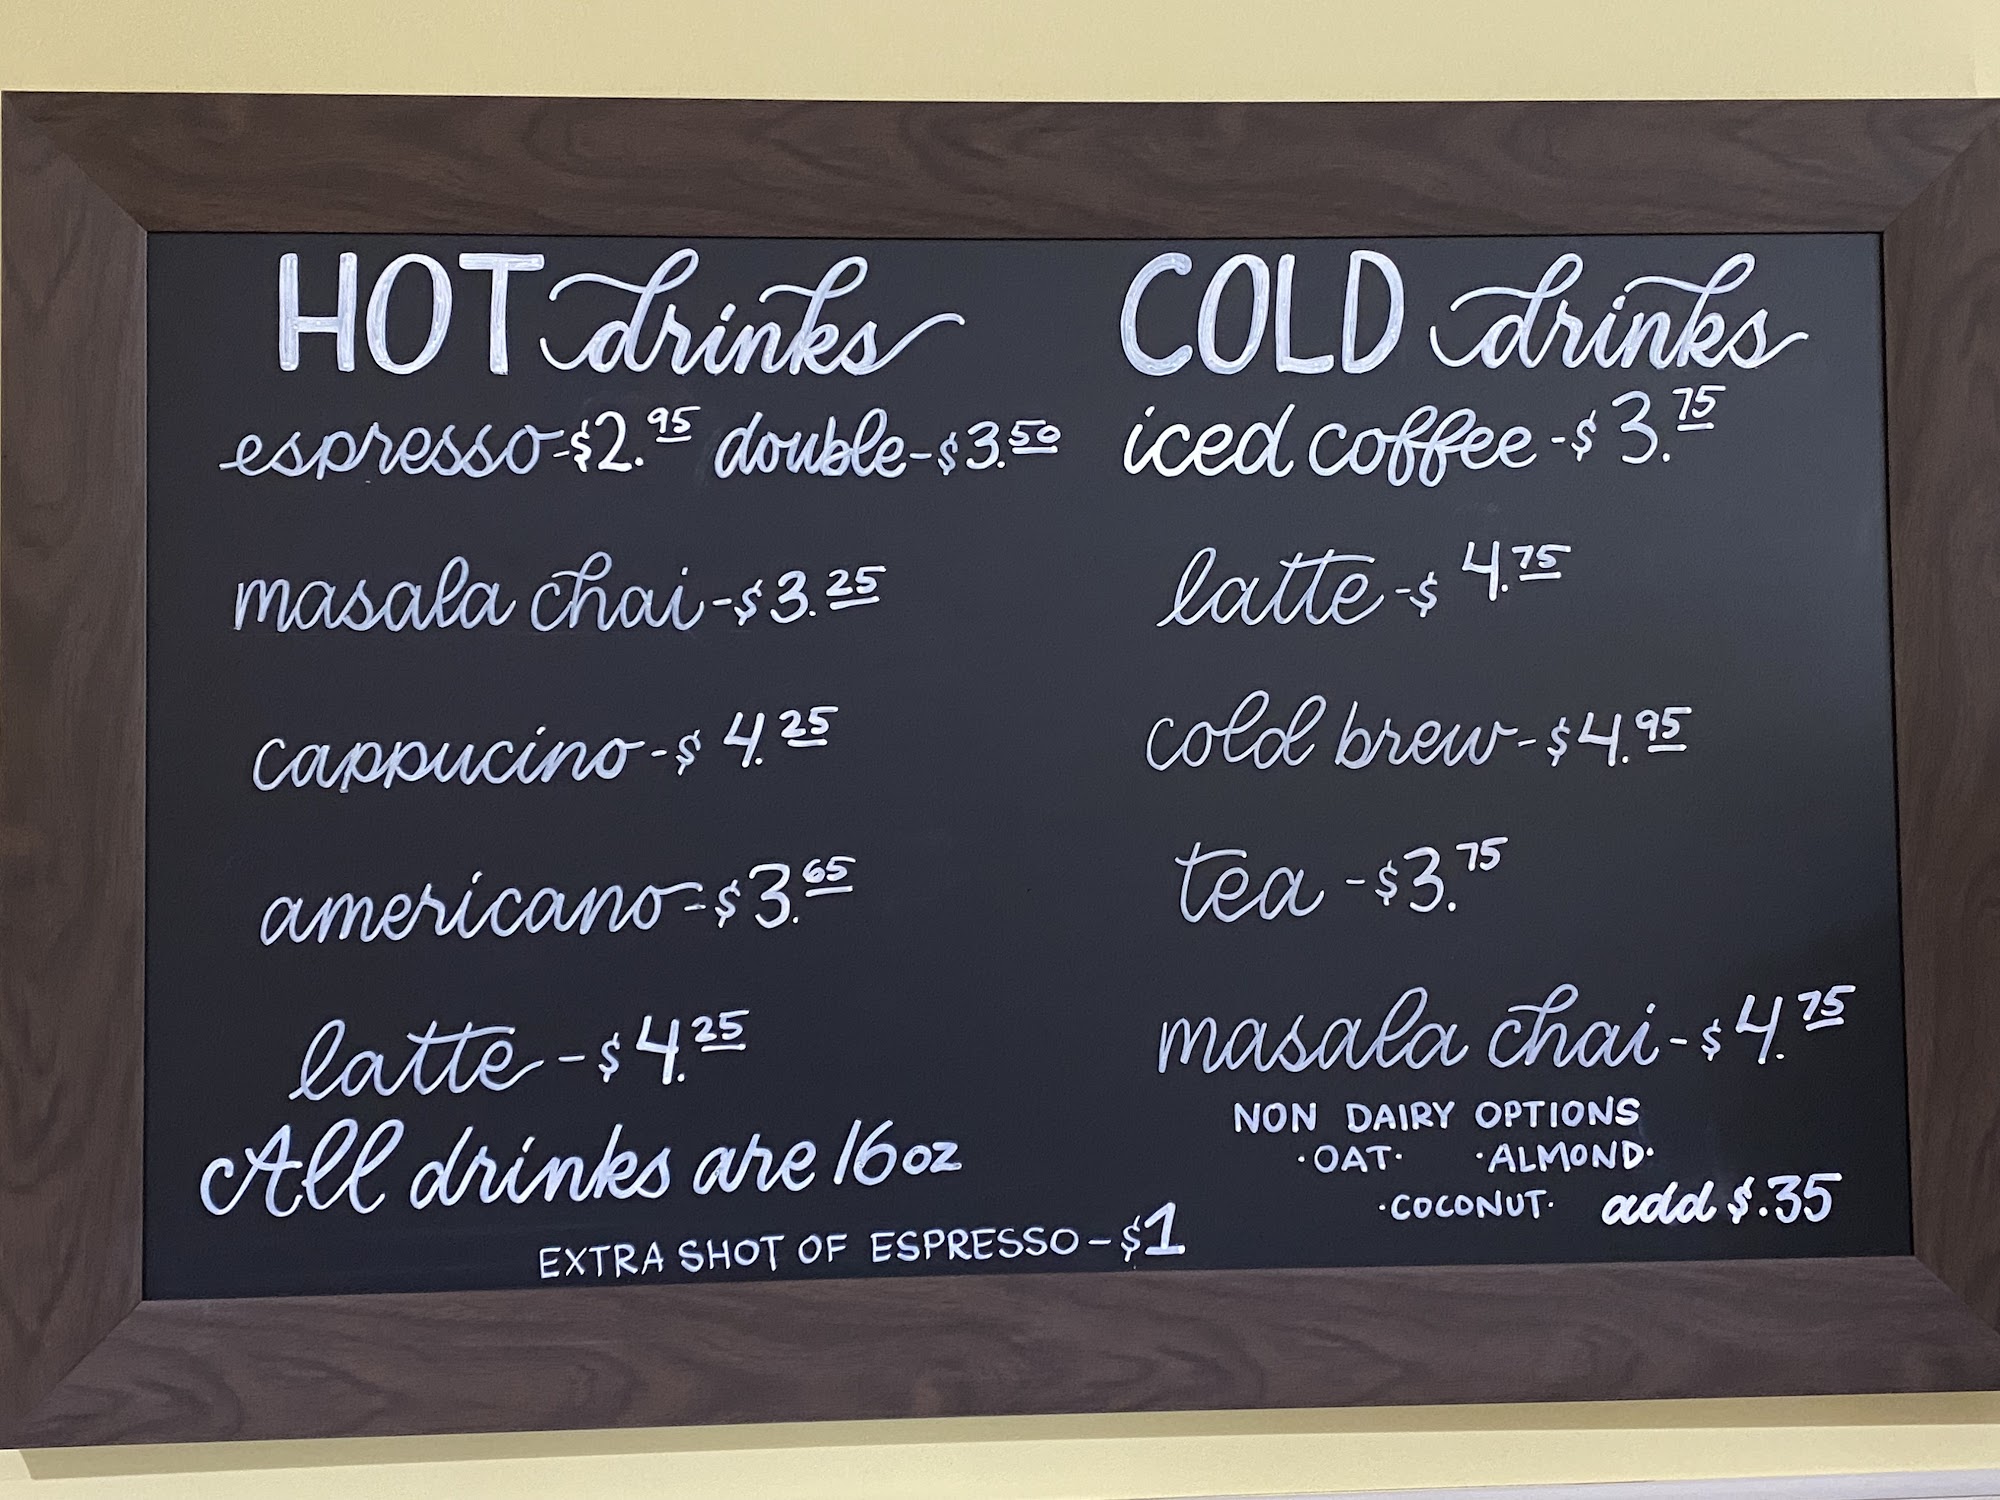 HOT drinks
espresso-$2.95 double-$3.50
masala chai-$3.25
cappucino-$4.25
americano-$3.65
latte-$4.25
All drinks are 16oz
EXTRA SHOT OF ESPRESSO-$1
COLD drinks
iced coffee-$3.75
latte-$4.75
cold brew-$4.95
tea-$3.75
masala chai-$4.75
NON DAIRY OPTIONS
·OAT· ·ALMOND·
·COCONUT· add $.35